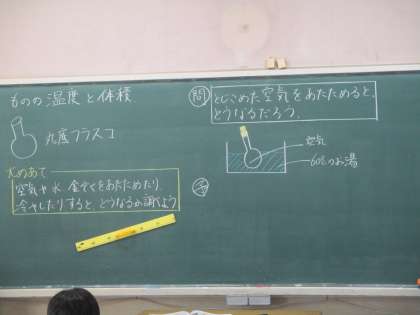 ものの温度と体積
丸底フラスコ
めあて
空気や水、金ぞくをあたためたり
冷やしたりすると、どうなるか調べよう
問
とじこめた空気をあたためると、
どうなるだろう。
空気
60℃のお湯
予